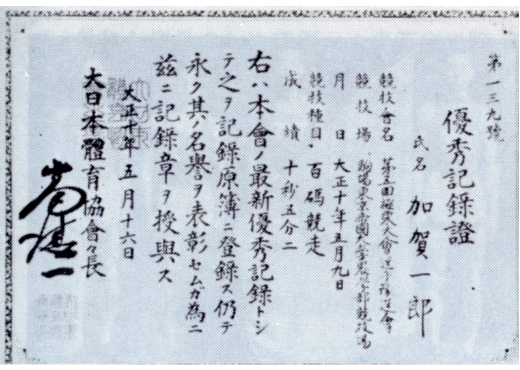 第一三九號
優秀記錄證
氏名 加賀一郎
競技會名 第五回極東大會
競技場 駒場東京帝國大學農學部競技場
月日 大正十年五月九日
競技種目 百碼競走
成績 十秒五分二
右ハ本會ノ最新優秀記錄トシ
テ之ヲ記錄原簿ニ登錄ス仍テ
永ク其ノ名譽ヲ表彰セムカ爲ニ
茲ニ記錄章ヲ授與ス
大正十年五月十六日
大日本體育協會々長